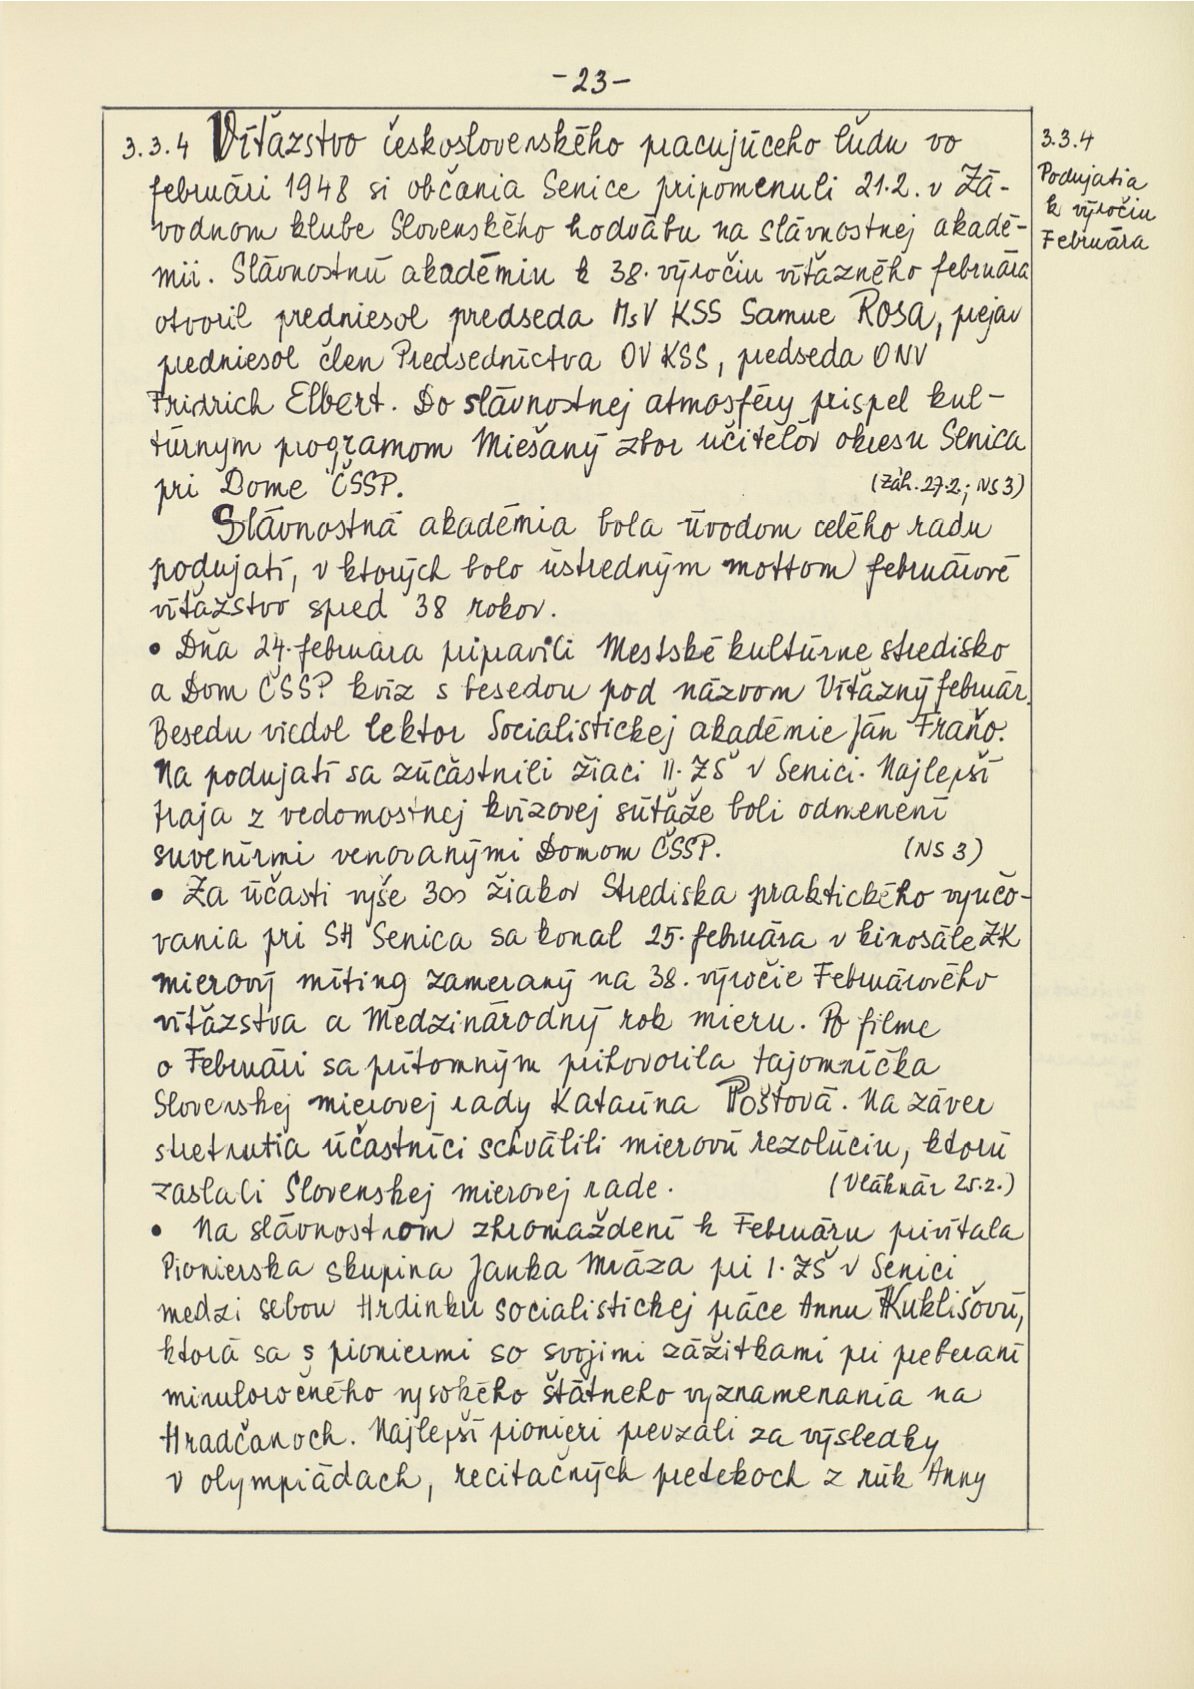 -23-
3.3.4 Víťazstvo československého pracujúceho ľudu vo
februári 1948 si občania Senice pripomenuli 21.2. v Zá-
vodnom klube Slovenského hodvábu na slávnostnej akadé-
mii. Slávnostnú akadémiu k 38. výročiu víťazného februára
otvoril predniesol predseda MsV KSS Samue Rosa, prejav
predniesol člen Predsedníctva OV KSS, predseda ONV
Fridrich Elbert. Do slávnostnej atmosféry prispel kul-
túrnym programom Miešaný zbor učiteľov okresu Senica
pri Dome ČSSP. (Záh. 27.2.; NS 3)
Slávnostná akadémia bola úvodom celého radu
podujatí, v ktorých bolo ústredným mottom februárové
víťazstvo spred 38 rokov.
• Dňa 24. februára pripravili Mestské kultúrne stredisko
a Dom ČSSP kvíz s besedou pod názvom Víťazný február.
Besedu viedol lektor Socialistickej akadémie Ján Fraňo.
Na podujatí sa zúčastnili žiaci II. ZŠ v Senici. Najlepší
traja z vedomostnej kvízovej súťaže boli odmenení
suvenírmi venovanými Domom ČSSP. (NS 3)
• Za účasti vyše 300 žiakov Strediska praktického vyučo-
vania pri SH Senica sa konal 25. februára v kinosále ZK
mierový míting zameraný na 38. výročie Februárového
víťazstva a Medzinárodný rok mieru. Po filme
o Februári sa prítomným prihovorila tajomníčka
Slovenskej mierovej rady Katarína Poštová. Na záver
stretnutia účastníci schválili mierovú rezolúciu, ktorú
zaslali Slovenskej mierovej rade. (Vláknár 25.2.)
• Na slávnostnom zhromaždení k Februáru privítala
Pionierska skupina Janka Mráza pri I. ZŠ v Senici
medzi sebou Hrdinku socialistickej práce Annu Kuklišovú,
ktorá sa s pioniermi so svojimi zážitkami pri preberaní
minuloročného vysokého štátneho vyznamenania na
Hradčanoch. Najlepší pionieri prevzali za výsledky
v olympiádach, recitačných pretekoch z rúk Anny
3.3.4
Podujatia
k výročiu
Februára